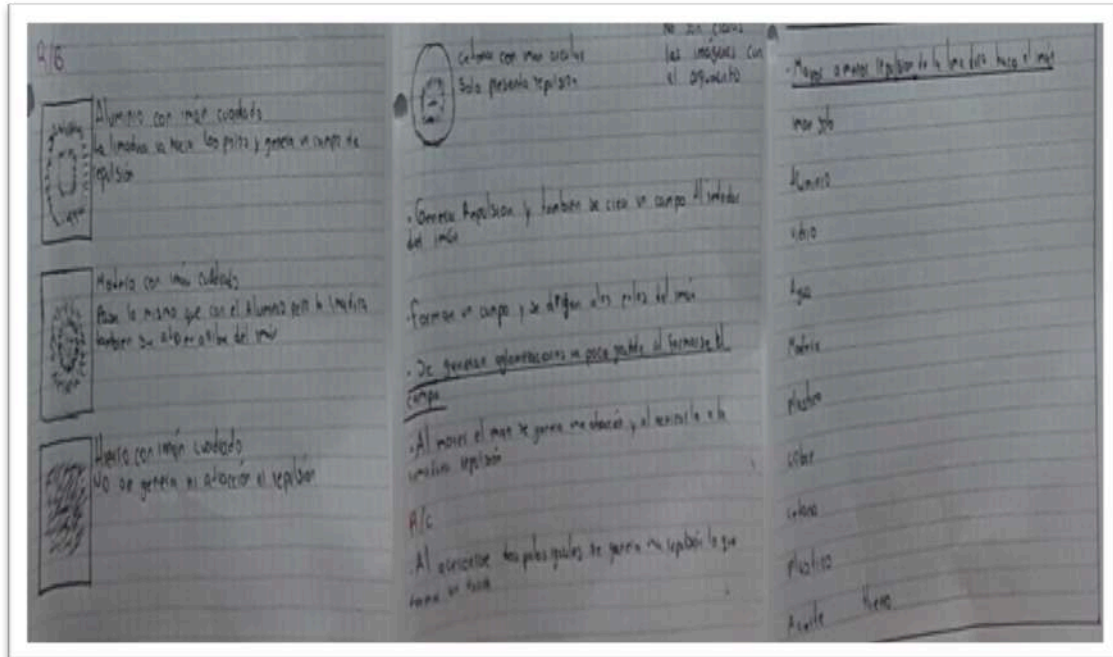 A/B
Aluminio con imán cuadrado
La limadura va hacia los polos y genera un campo de
repulsión
Madera con imán cuadrado
Pasa lo mismo que con el Aluminio pero la limadura
también se del imán
Hierro con imán cuadrado
No se genera ni atracción ni repulsión
con iman
Solo presenta repulsión
No son claras
las imágenes con
el argumento
· Genera Repulsion y también se crea un campo Al rededor
del imán
· Forman un campo y se dirigen a los polos del imán
· Se generan aglomeraciones un poco grande al formarse el
campo
· Al mover el iman se genera una atracción y al acercarla a la
limadura repulsión
A/C
· Al acercarse dos polos iguales se genera una repulsión lo que
· Mayor a menor repulsion de la limadura hacia el imán
iman solo
Aluminio
vidrio
Agua
Madera
plastico
cobre
plastico
Aceite Hierro